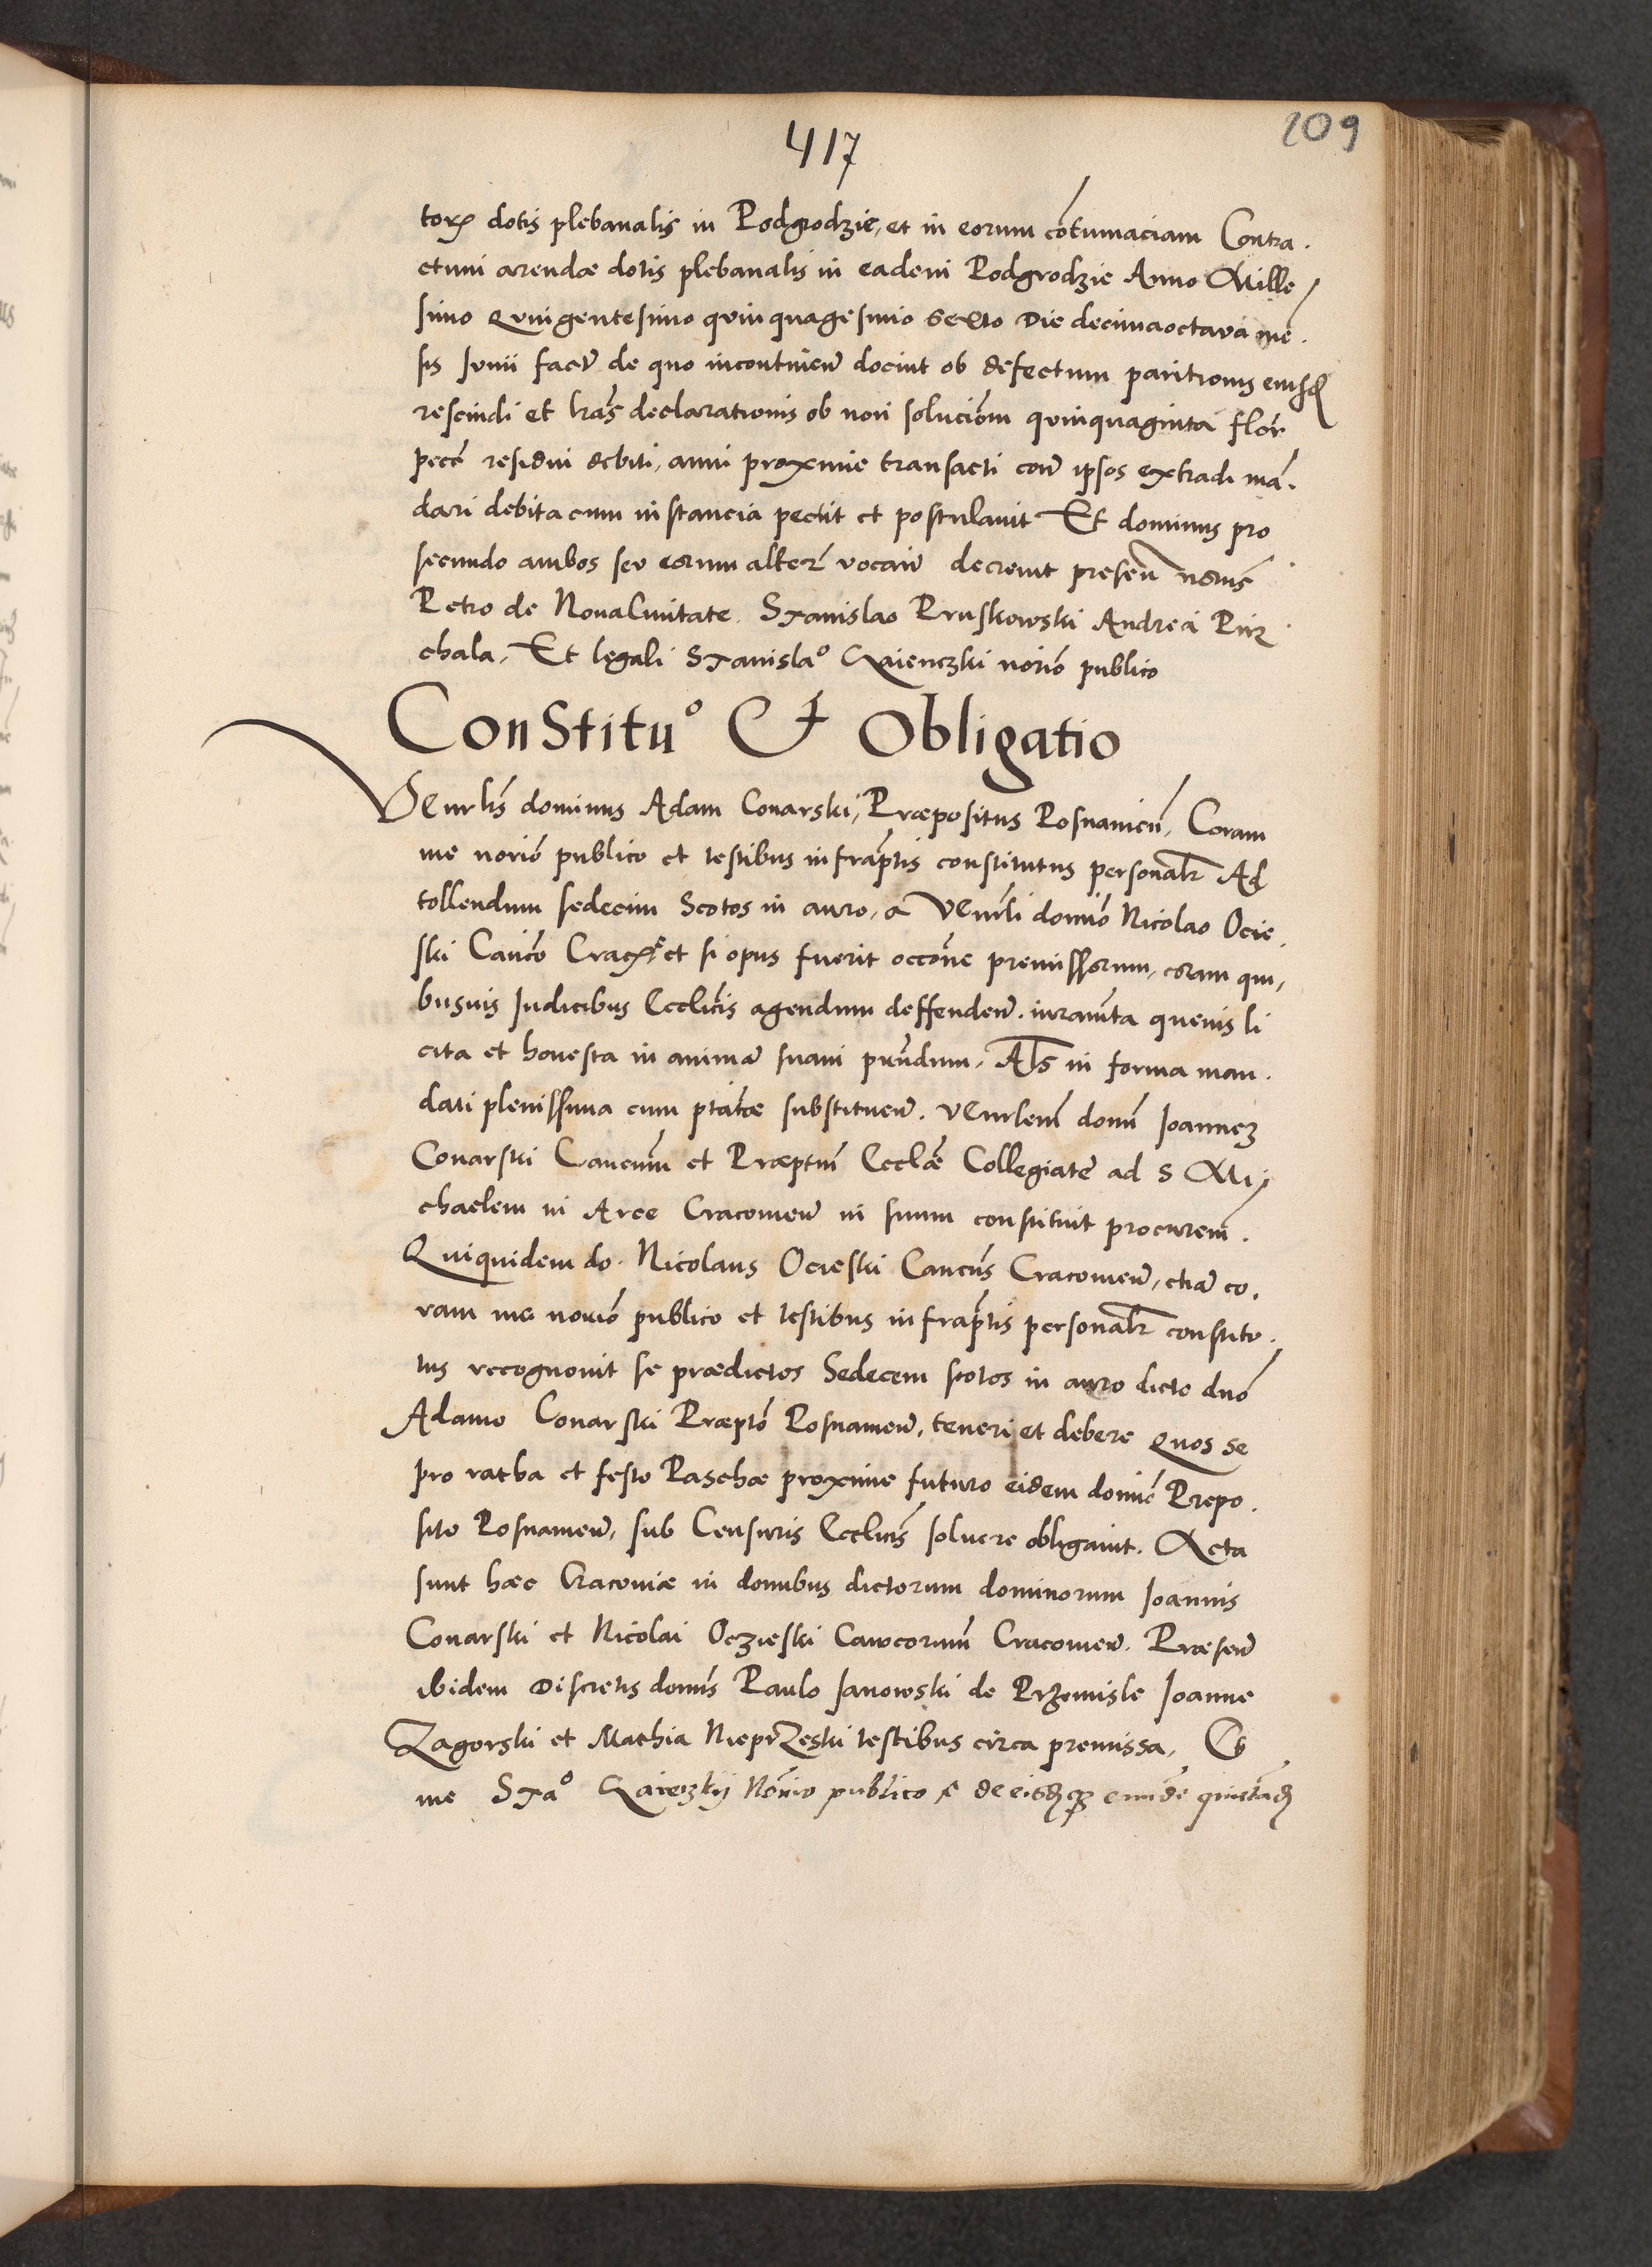 417
209
torꝝ dotis plebanalis in Podgrodzie, et in eorum cōtumaciam Contra-
ctum arendæ dotis plebanalis in eadem Podgrodzie Anno Mille/
simo Quingentesimo quinquagesimo Sexto Die decimaoctava mē-
sis Junii fact̄ de quo incontinen̄ docint ob defectum paritionis
rescindi et lr̄as declarationis ob non solucio͞m quinquaginta flor̄
pecc̄ residui debiti, anni proxime transacti con̄ ipsos extradi mā-
dari debita cum instancia petiit et postulavit Et dominus pro
secundo ambos seu eorum alter̄ vocan̄ decrevit presen̄
Petro de Nova Civitate. Stanislao Pruskowski Andrea Pirz
chala. Et legali Stanislaᵒ norio publico
Constituᵒ Et Obligatio
Venrl̄is dominus Adam Conarski, Præpositus Posnanien̄, Coram
me norio publico et testibus infrap̄tis constitutus personalr̄ Ad
tollendum sedecim Scotos in auro, a Venrl̄i domīo Nicolao Ocie
ski Canc̄o Cracꝝ et si opus fuerit occōne premissorum, coram qui,
busvis Judicibus Ecclicis agendum deffenden̄. iuramn̄ta quevis li
cita et honesta in animā suam prn̄dum. Al̄s in forma man-
dati plenissima cum ptāte substituen̄. Venrlem̄ domn̄ Joannez
Conarski Cancum̄ et Præptum̄ Ecclǣ Collegiate ad S Mi/
chaelem in Arce Cracovien̄ in suum constituit procurem̄.
Quiquidem do. Nicolaus Ocieski Cancus̄ Cracovien̄, etiā co-
ram me norio publico et testibus infrap̄tis personalr̄ constitu-
tus recognovit se prædictos Sedecem scotos in auro dicto dnō
Adamo Conarski Præptō Posnanien̄, teneri et debere Quos se
pro et festo Paschæ proxime futuro eidem domīo Prepo-
sito Posnanien̄, sub Censuris Ecclicis̄ solvere obligavit. Acta
sunt hæc Cracoviæ in domibus dictorum dominorum Joannis
Conarski et Nicolai Oczieski Cancorum̄ Cracovien̄. Præsen̄
ibidem Discretis domīs Paulo Janowski de Przemisle Joanne
Zagorski et Mathia NieprZeski testibus circa premissa, Et
me Staᵒ norio publico